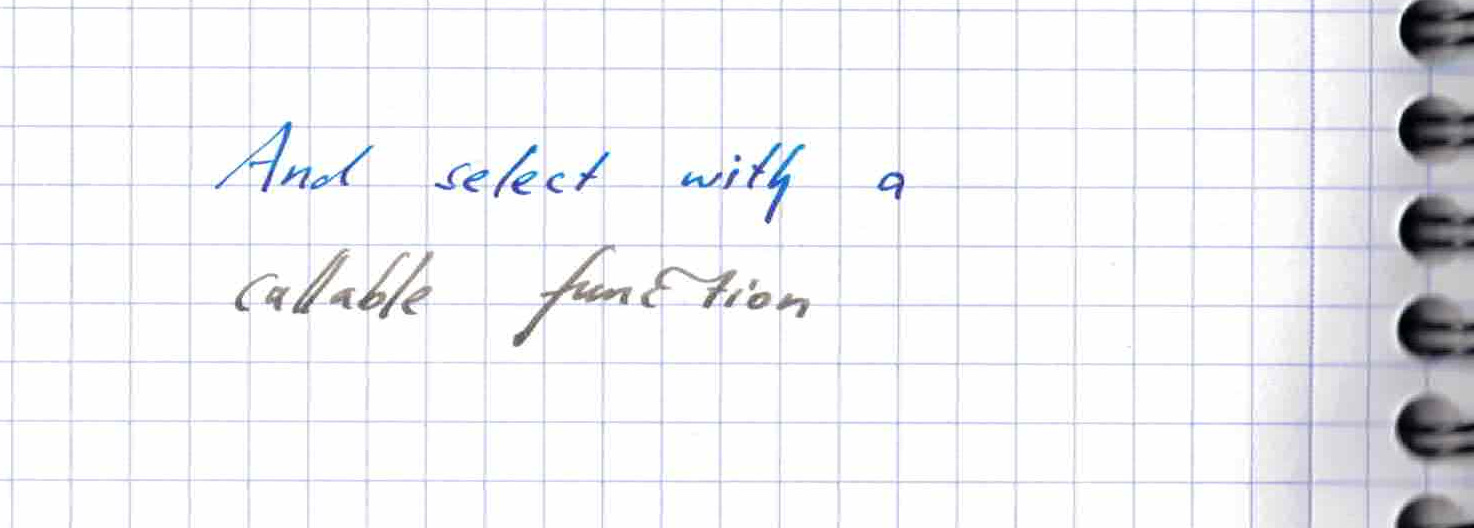 And select with a
callable function